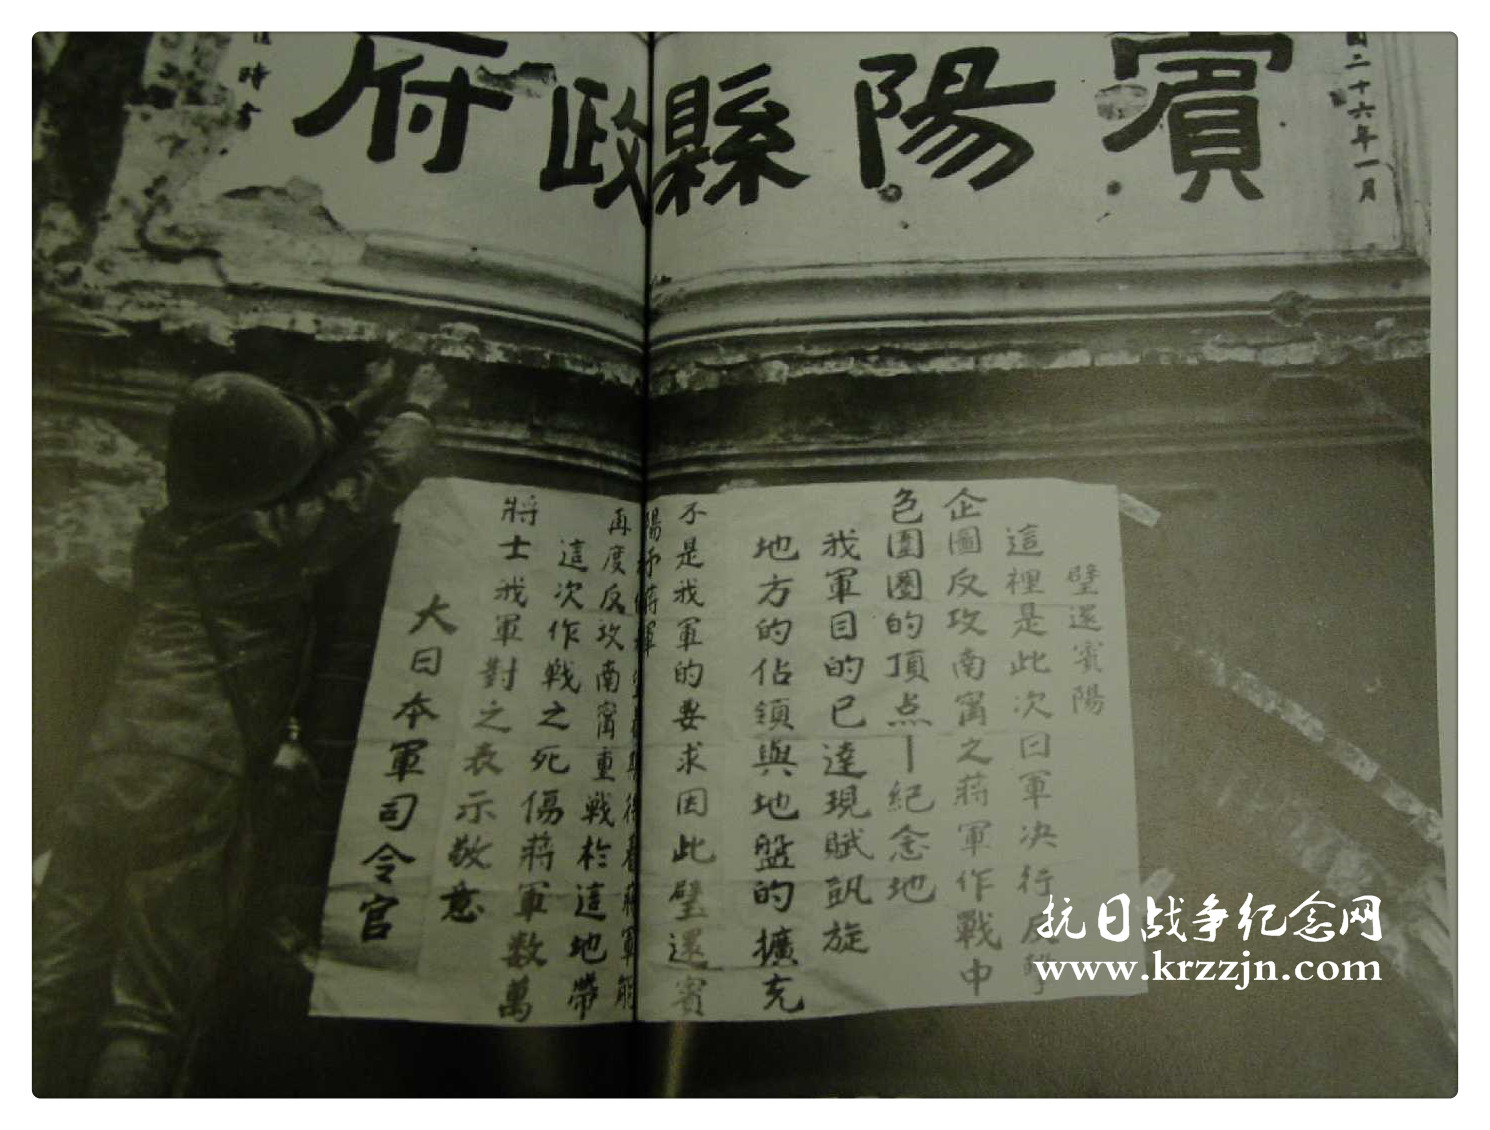 賓陽縣政府
國二十六年一月
時書
璧還賓陽
這裡是此次日軍决行反
企圖反攻南甯之蔣軍作戰中
色圍圈的頂点—紀念地
我軍目的已達現賦凱旋
地方的佔領與地盤的擴充
不是我軍的要求因此璧還賓
再度反攻南甯重戰於這地帶
這次作戰之死傷蔣軍数萬
將士我軍對之表示敬意
大日本軍司令官
抗日战争纪念网
www.krzzjn.com